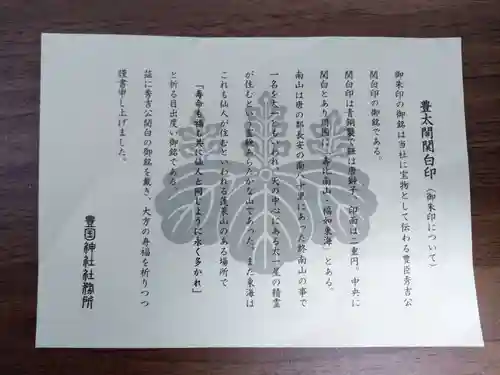 豊太閤関白印（御朱印について）
御朱印の御銘は当社に宝物として伝わる豊臣秀吉公
関白印の御銘である。
関白印は青銅製で鈕は唐獅子、印面は二重円。中央に
関白とあり周囲に「寿比南山・福如東海」とある。
南山は唐の都長安の南八十里にあった終南山の事で
一名を太一ともいわれ、天の中心にある太一星の精霊
が住むという霊験あらたかな山であった。また東海は
これも仙人が住むといわれる蓬莱山のある場所で
「寿命も福も共に仙人と同じように永く多かれ」
と祈る目出度い御銘である。
茲に秀吉公関白の御銘を戴き、大方の寿福を祈りつつ
謹書申し上げました。
豊国神社社務所